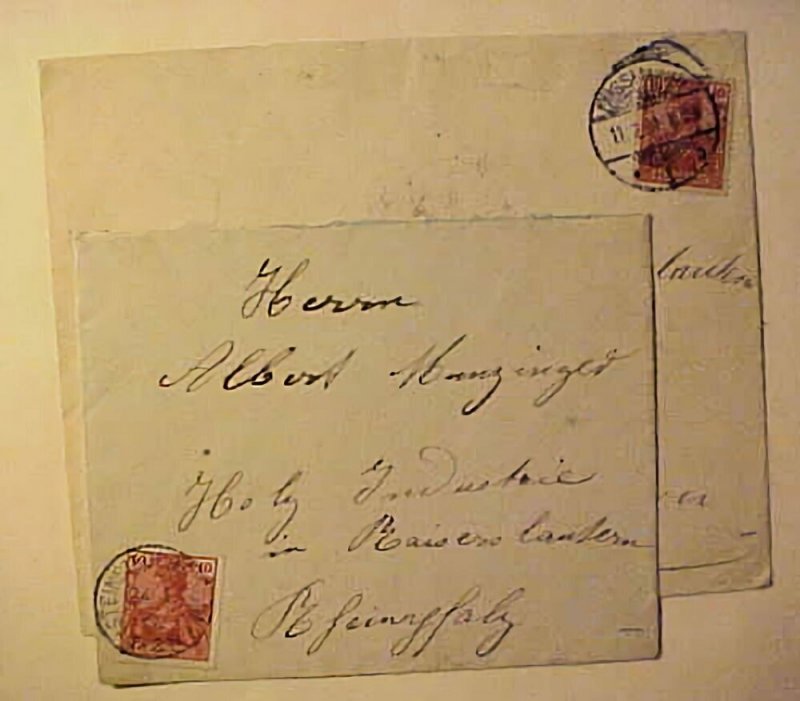 Herrn
Albert Munzinger
Holz Industrie
in Kaiserslautern
Rheinpfalz
11.7.
10
10
STEIN
24